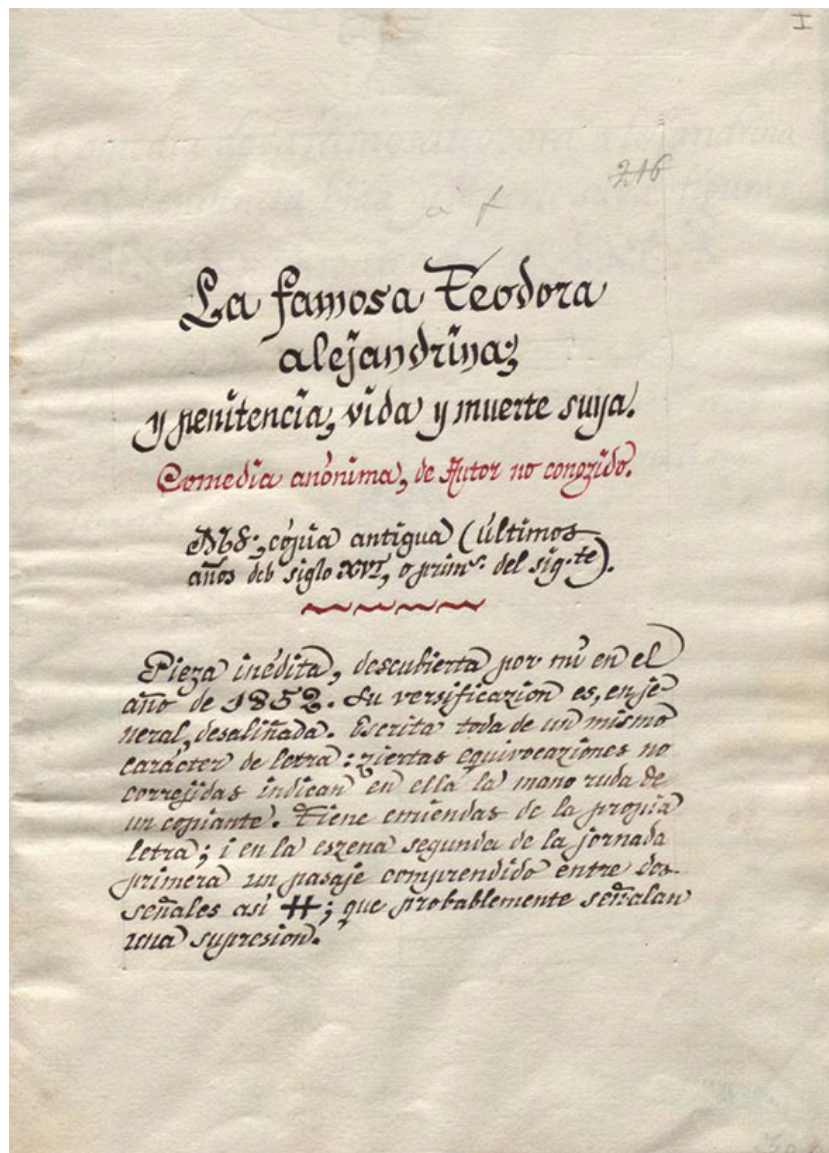 I
216
à f
La famosa Teodora
alejandrina;
y penitencia, vida y muerte suya.
Comedia anónima, de Autor no conozido.
MS., cópia antigua (últimos
años del siglo XVI, o prim.s del sig.te).
Pieza inédita, descubierta por mí en el
año de 1852. Su versificazion es, en je-
neral, desaliñada. Escrita toda de un mismo
carácter de letra: ziertas equivocaziones no
correjidas indican en ella la mano ruda de
un copiante. Tiene emiendas de la propia
letra; i en la eszena segunda de la jornada
primera un pasaje comprendido entre dos
señales asi #; que probablemente señalan
una supresion.